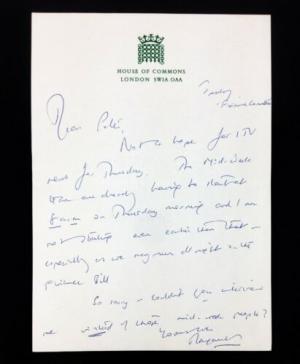 HOUSE OF COMMONS
LONDON SW1A 0AA
Dear Peter,
Not a hope for ITV
news for Thursday. The Mid-week
are already having to start at
8 a.m. on Thursday morning and I am
not starting even earlier than that –
especially as we may run all night on the
Finance Bill
So sorry – couldn't you interview
me instead of those mid-week people?
Yours ever
Margaret